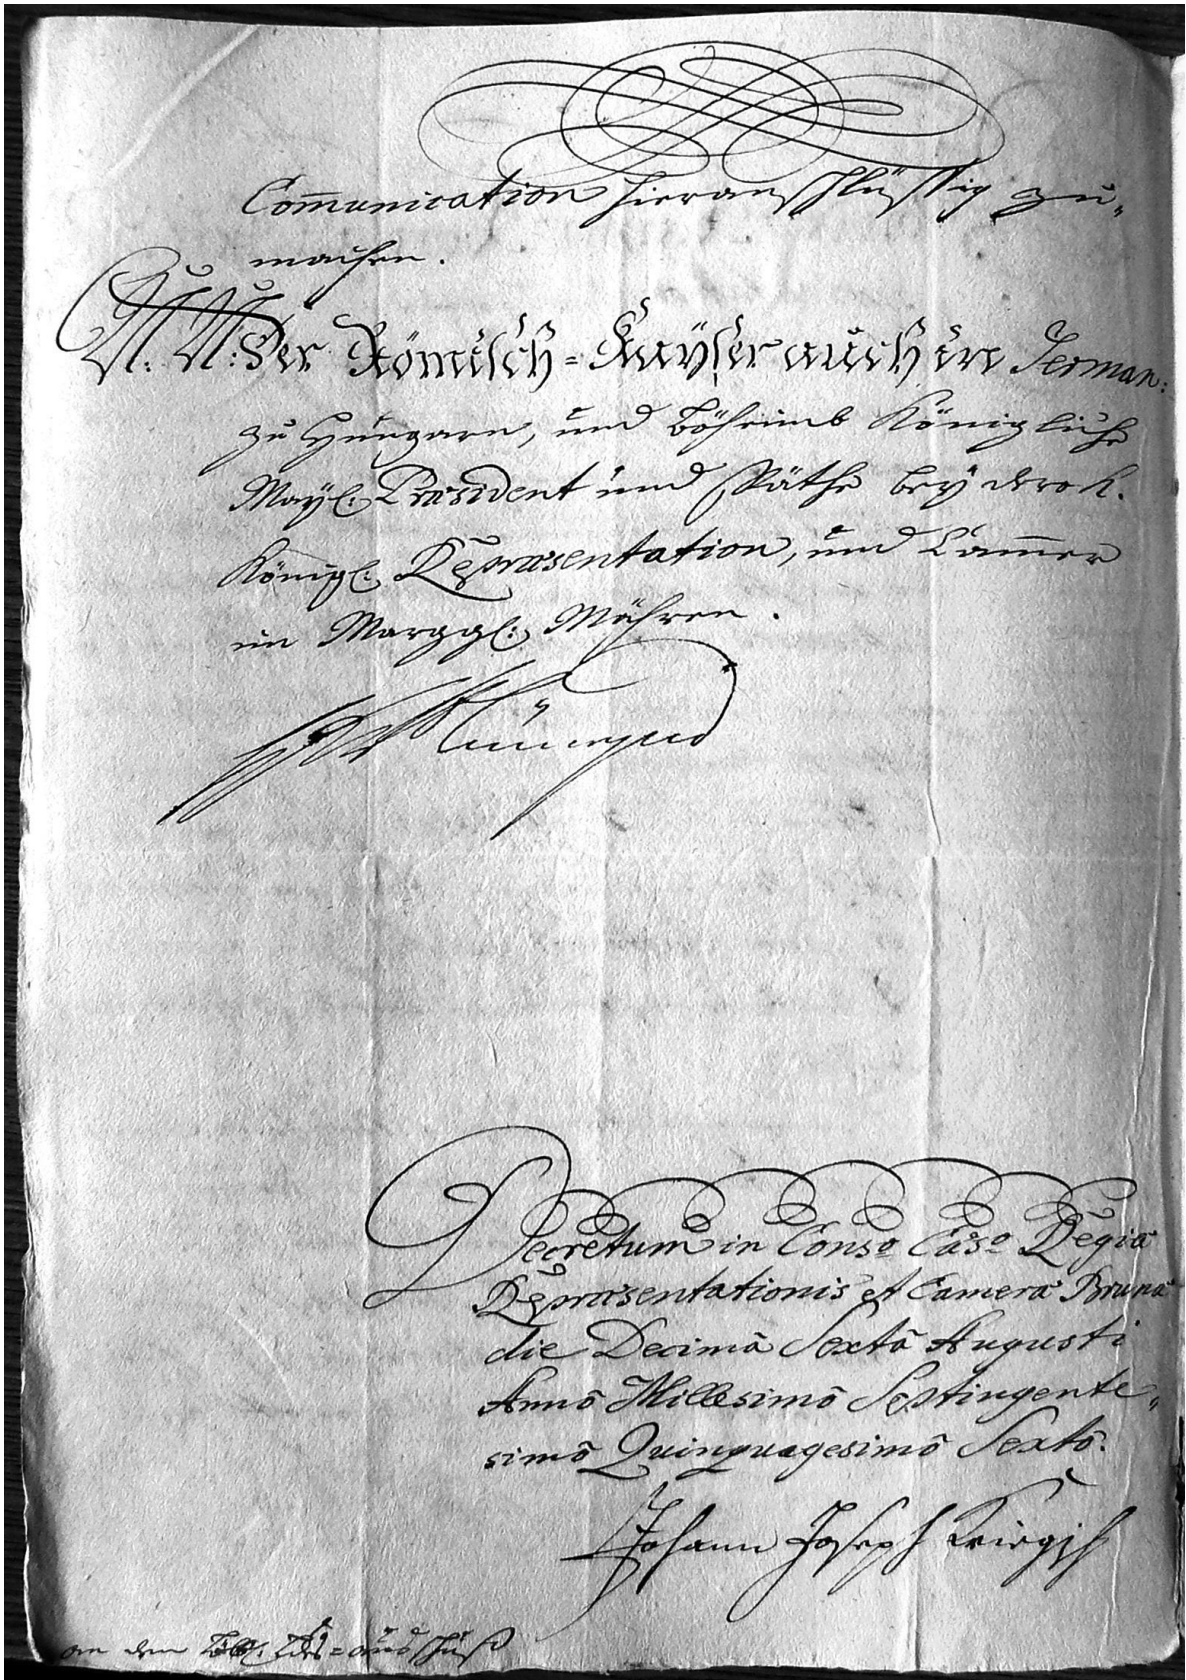 Com̄unication hieranschlüssig zu„
machen.
N: N: Der Römisch=Kayser auch in German:
zu Hungarn, und Böheimb Königliche
May: Præsident und Räthe bey dero K.
Königl: Repræsentation, und Cam̄er
im Marggl: Mähren.
Decretum in Conso Cæso Regiæ
Repræsentationis et Cameræ Brunæ
die Decimâ Sextâ Augusti
Annô Millesimô Septingente„
simô Quinquagesimô Sextô.
Johann Joseph
an den Löbl: Lds=ausschuß